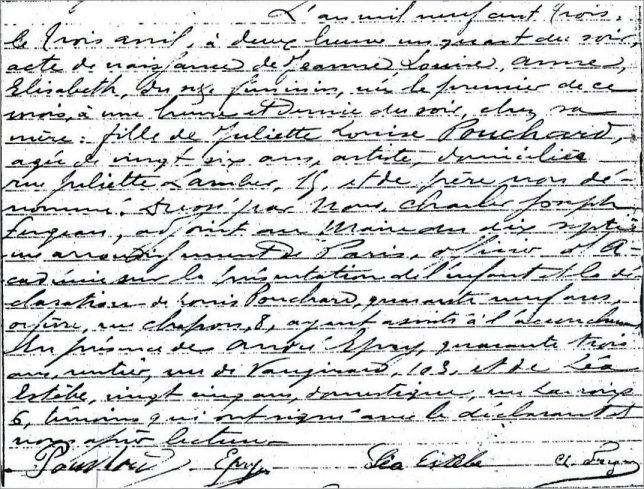 L'an mil neuf cent trois,
le trois avril, à deux heures un quart du soir
acte de naissance de Jeanne, Louise, Anne,
Elisabeth, du sexe féminin, née le premier de ce
mois, à une heure et demie du soir, chez sa
mère: fille de Juliette Louise Pouchard,
agée de vingt six ans, artiste, domiciliée
rue Juliette Lamber, 15, et de père non dé-
nommé. Dressé par Nous, Charles Joseph
adjoint au Maire du dix septiè
me arrondissement de Paris, officier d'A-
cadémie, sur la présentation de l'enfant et la dé
claration de Louis Pouchard, quarante neuf ans,
orfèvre, rue Chapon, 8, ayant assisté à l'accouchement
En présence de André Epry, quarante trois
ans, rentier, rue de Vaugirard, 103, et de Léa
Estèbe, vingt cinq ans, domestique, rue
6, témoins qui ont signé avec le déclarant et
nous après lecture.
Epry Léa Estèbe